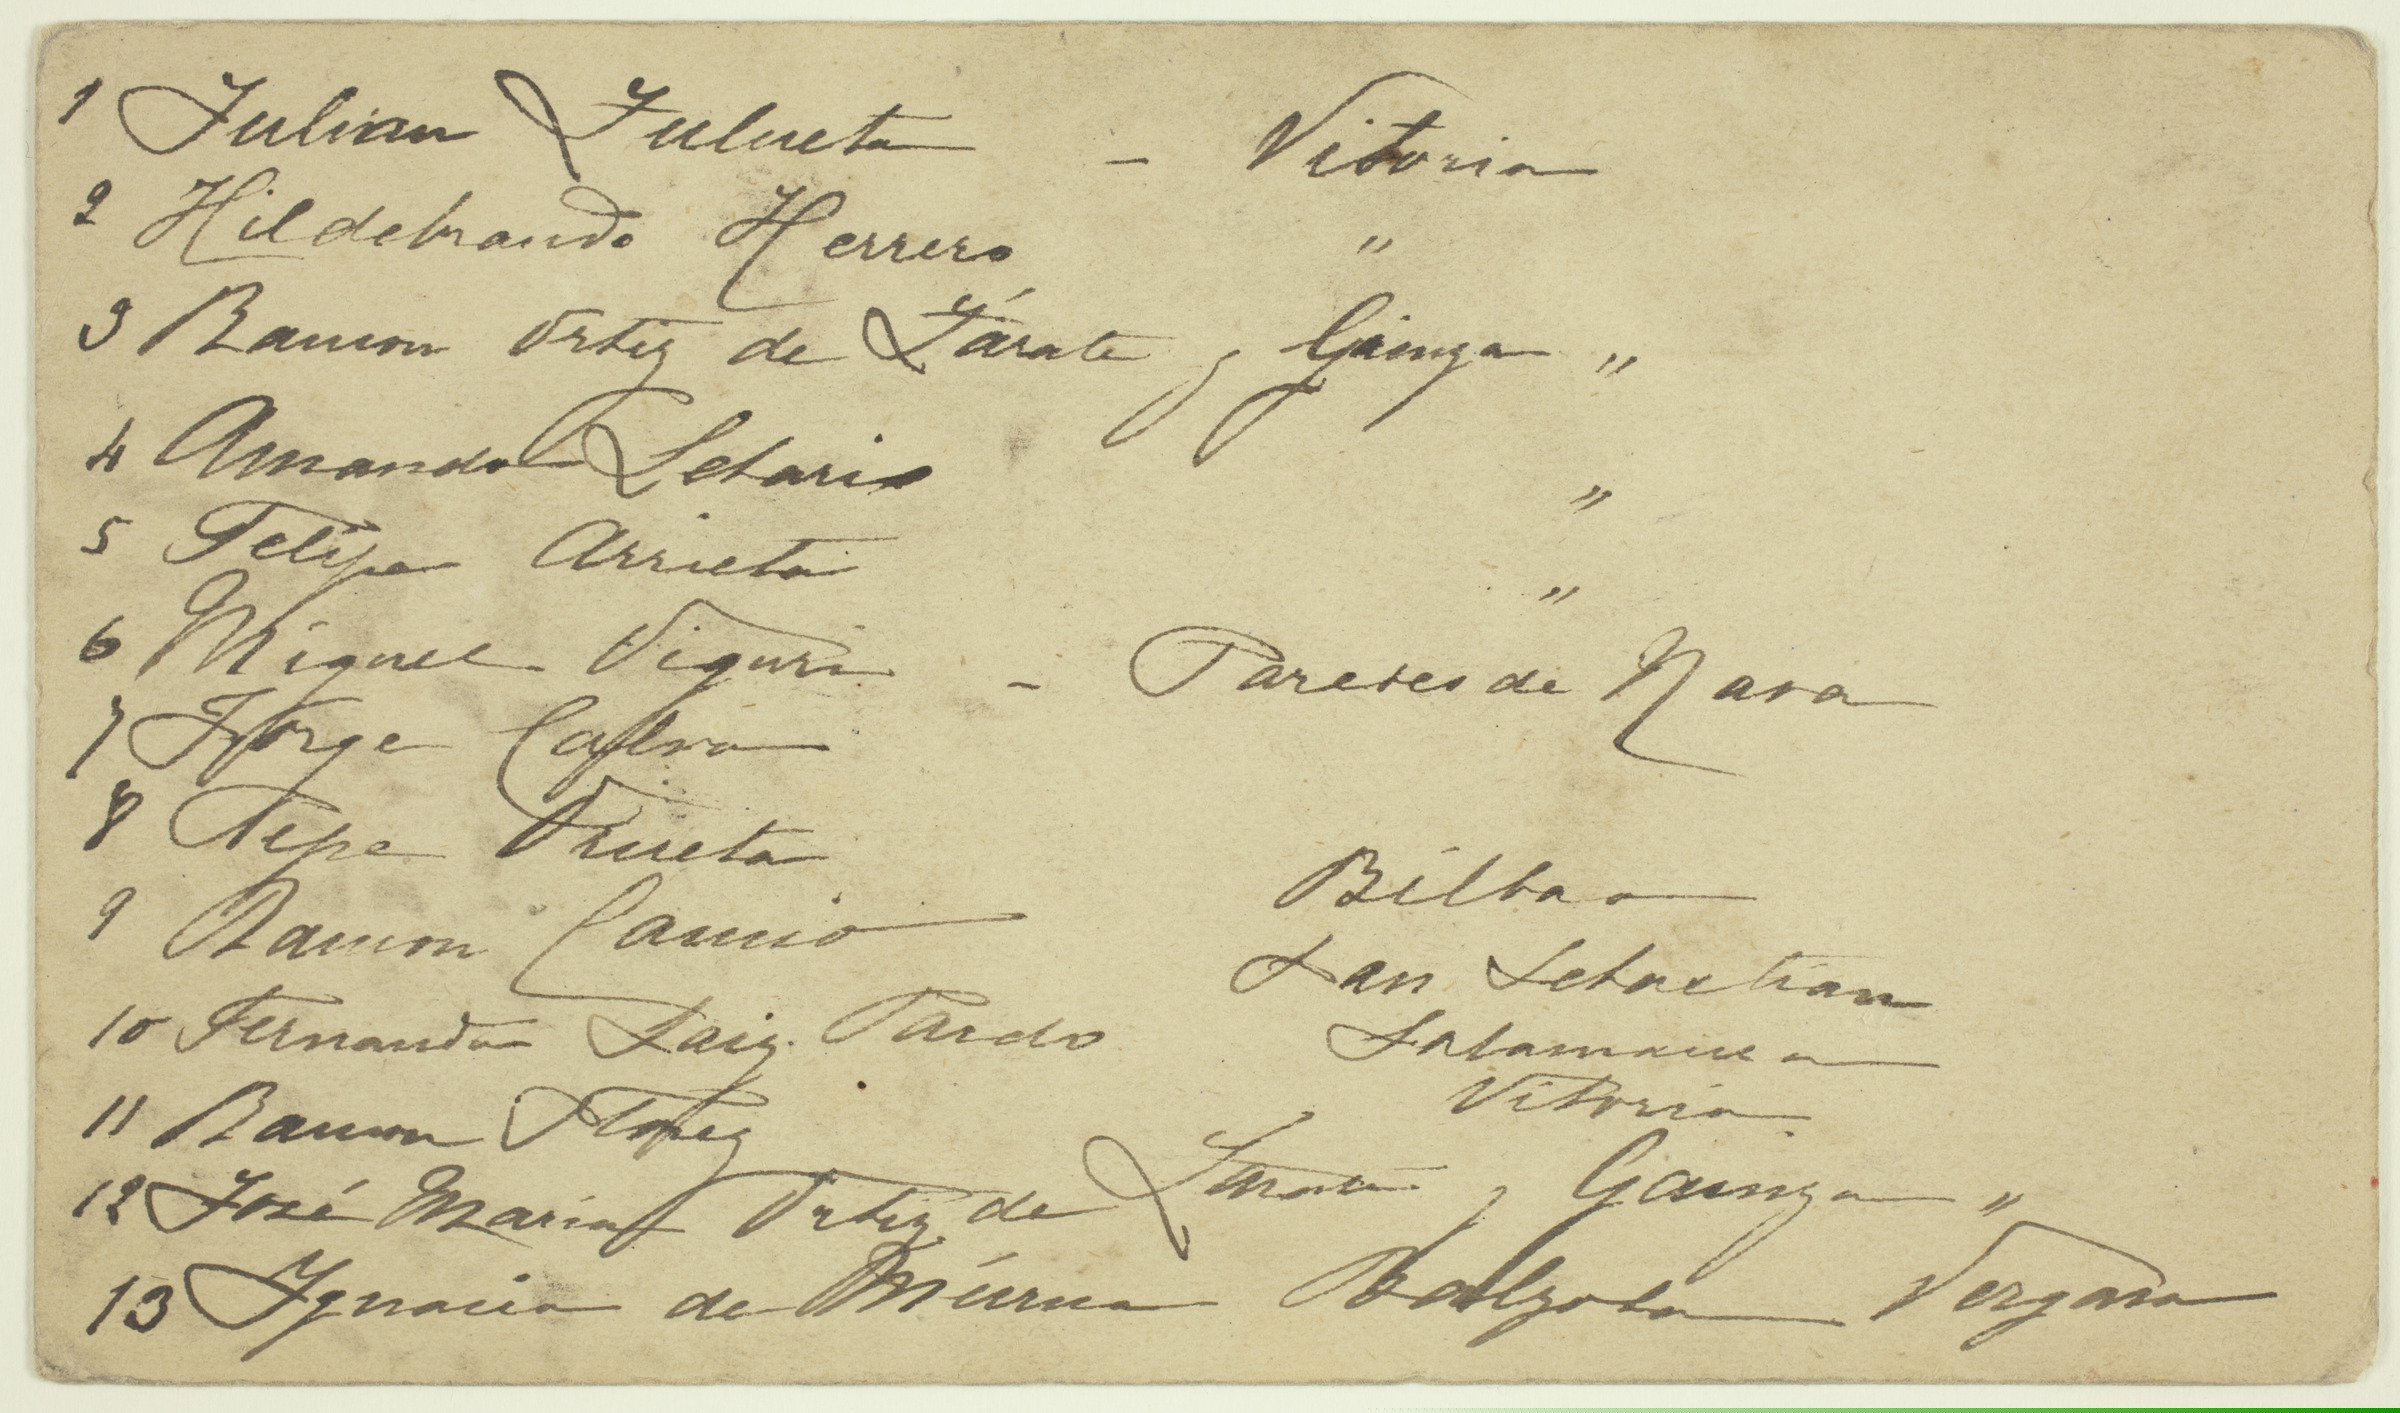 1 Julian Zulueta - Vitoria
2 Hildebrando Herrero "
3 Ramon Ortiz de Zárate y Gainza "
4 Amando Letario "
5 Felipe Arrieta "
6 Miguel Viguri - Paredes de Nava
7 Jorge Calvo
8 Pepe Urueta Bilbao
9 Ramon Camio San Sebastian
10 Fernando Saiz Pardo Salamanca
11 Ramon Florez Vitoria
12 José Maria Ortiz de Zarate y Gainza "
13 Ignacio de Múrua Balzola Vergara